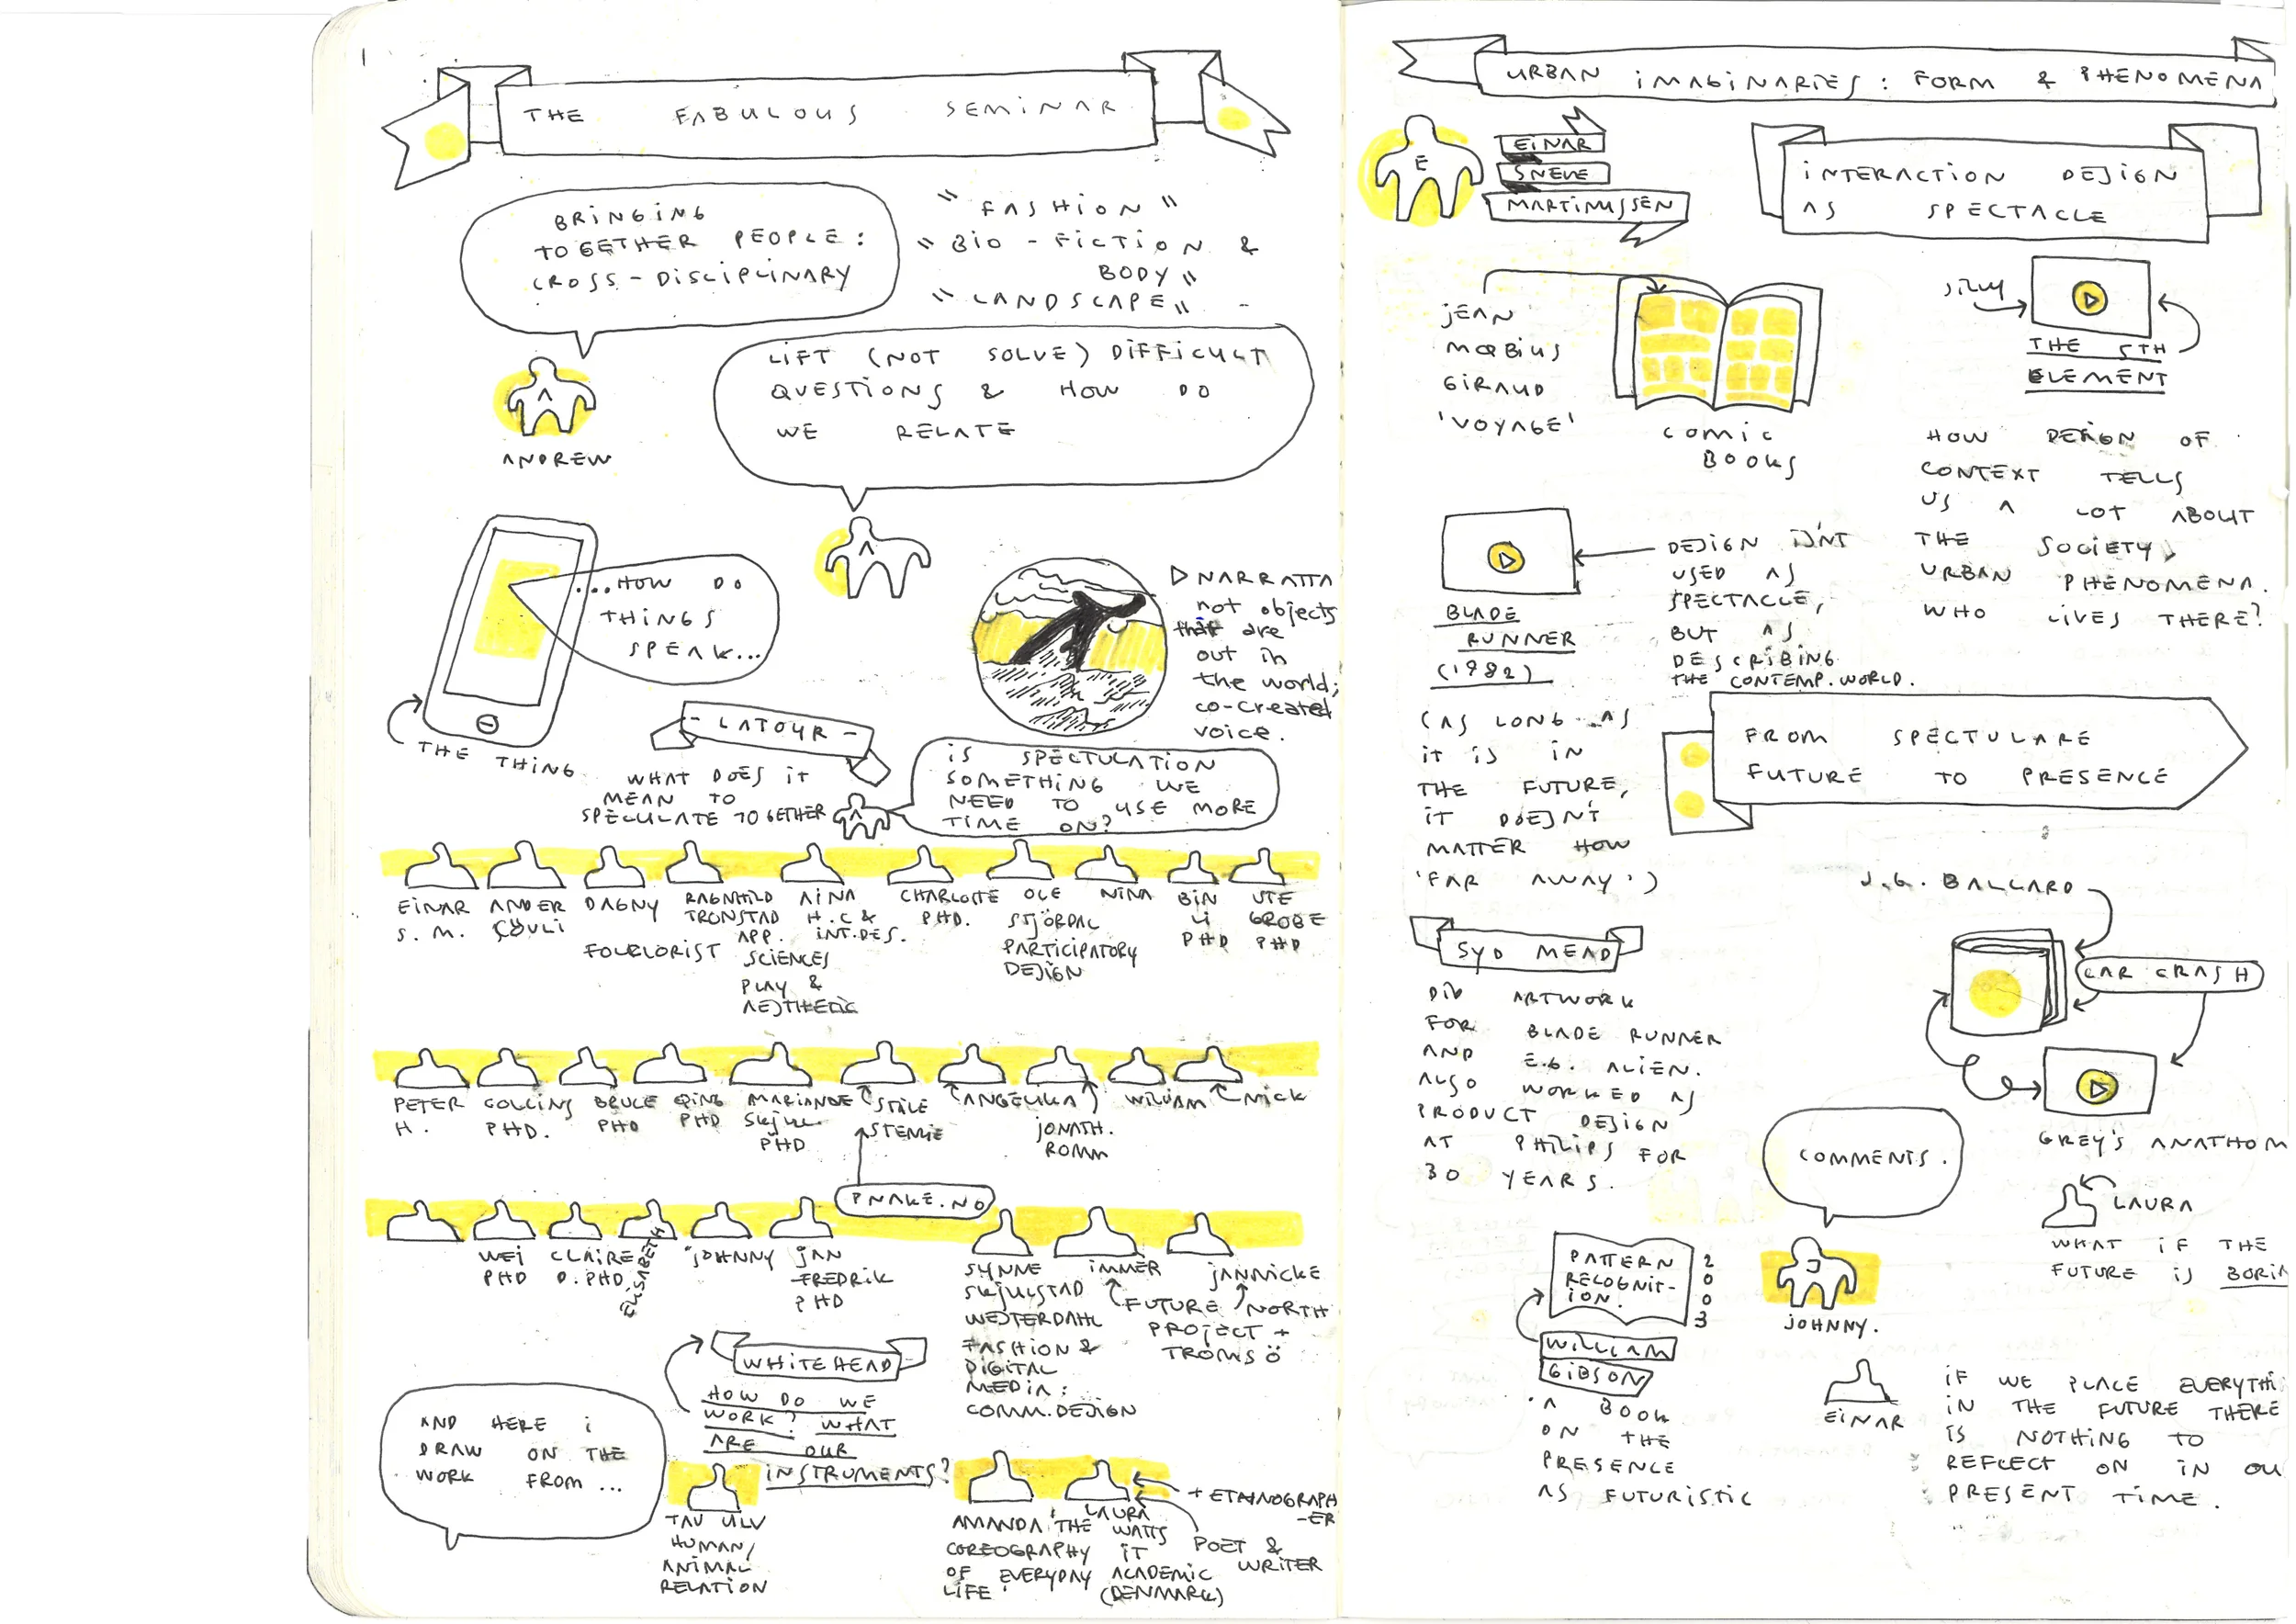 1
THE FABULOUS SEMINAR
BRINGING
TOGETHER PEOPLE:
CROSS-DISCIPLINARY
"FASHION"
"BIO-FICTION &
BODY"
"LANDSCAPE" -
A
ANDREW
LIFT (NOT SOLVE) DIFFICULT
QUESTIONS & HOW DO
WE RELATE
A
...HOW DO
THINGS
SPEAK...
THE THING
NARRATTA
not objects
that are
out in
the world;
co-created
voice.
- LATOUR -
WHAT DOES IT
MEAN TO
SPECULATE TOGETHER
A
IS SPECTULATION
SOMETHING WE
NEED TO USE MORE
TIME ON?
EINAR
S. M.
ANDER
DAGNY
FOLKLORIST
RAGNHILD
TRONSTAD
APP.
SCIENCES
PLAY &
AESTHETIC
AINA
H.C &
INT.DES.
CHARLOTTE
PHD.
OLE
STJÖRDAL
PARTICIPATORY
DESIGN
NINA
BIN
LI
PHD
UTE
GROBE
PHD
PETER
H.
COLLINS
PHD.
BRUCE
PHD
QING
PHD
MARIANDE
PHD
STÅLE
STENLIE
(ANGELIKA)
JONATH.
ROMM
WILLIAM
NICK
PNAKE.NO
WEI
PHD
CLAIRE
D. PHD
ELISABETH
JOHNNY
JAN
FREDRIK
PHD
SYNNE
SKJULSTAD
WESTERDAHL
FASHION &
DIGITAL
MEDIA:
COMM.DESIGN
IMMER
JANNICKE
FUTURE NORTH
PROJECT +
TROMSÖ
WHITEHEAD
HOW DO WE
WORK? WHAT
ARE OUR
INSTRUMENTS?
AND HERE I
DRAW ON THE
WORK FROM ...
TAU ULV
HUMAN/
ANIMAL
RELATION
AMANDA 'THE
COREOGRAPHY
OF EVERYDAY
LIFE'
LAURA
WATTS
IT
ACADEMIC
(DENMARK)
+ ETHNOGRAPH
-ER
POET &
WRITER
URBAN IMAGINARIES: FORM & PHENOMENA
E
EINAR
SNEVE
MARTINUSSEN
INTERACTION DESIGN
AS SPECTACLE
JEAN
MŒBIUS
GIRAUD
'VOYAGE'
COMIC
BOOKS
silly
THE 5TH
ELEMENT
HOW DESIGN OF
CONTEXT TELLS
US A LOT ABOUT
THE SOCIETY,
URBAN PHENOMENA.
WHO LIVES THERE?
BLADE
RUNNER
(1982)
DESIGN ISN'T
USED AS
SPECTACLE,
BUT AS
DESCRIBING
THE CONTEMP. WORLD.
(AS LONG AS
IT IS IN
THE FUTURE,
IT DOESN'T
MATTER HOW
'FAR AWAY')
FROM SPECTULARE
FUTURE TO PRESENCE
SYD MEAD
DID ARTWORK
FOR BLADE RUNNER
AND E.G. ALIEN.
ALSO WORKED AS
PRODUCT DESIGN
AT PHILIPS FOR
30 YEARS.
J.G. BALLARD
CAR CRASH
GREY'S ANATHOM
COMMENTS.
J
JOHNNY.
LAURA
WHAT IF THE
FUTURE IS BORIN
PATTERN
RECOGNIT-
ION.
2003
WILLIAM
GIBSON
A BOOK
ON THE
PRESENCE
AS FUTURISTIC
EINAR
IF WE PLACE EVERYTHI
IN THE FUTURE THERE
IS NOTHING TO
REFLECT ON IN OU
PRESENT TIME.